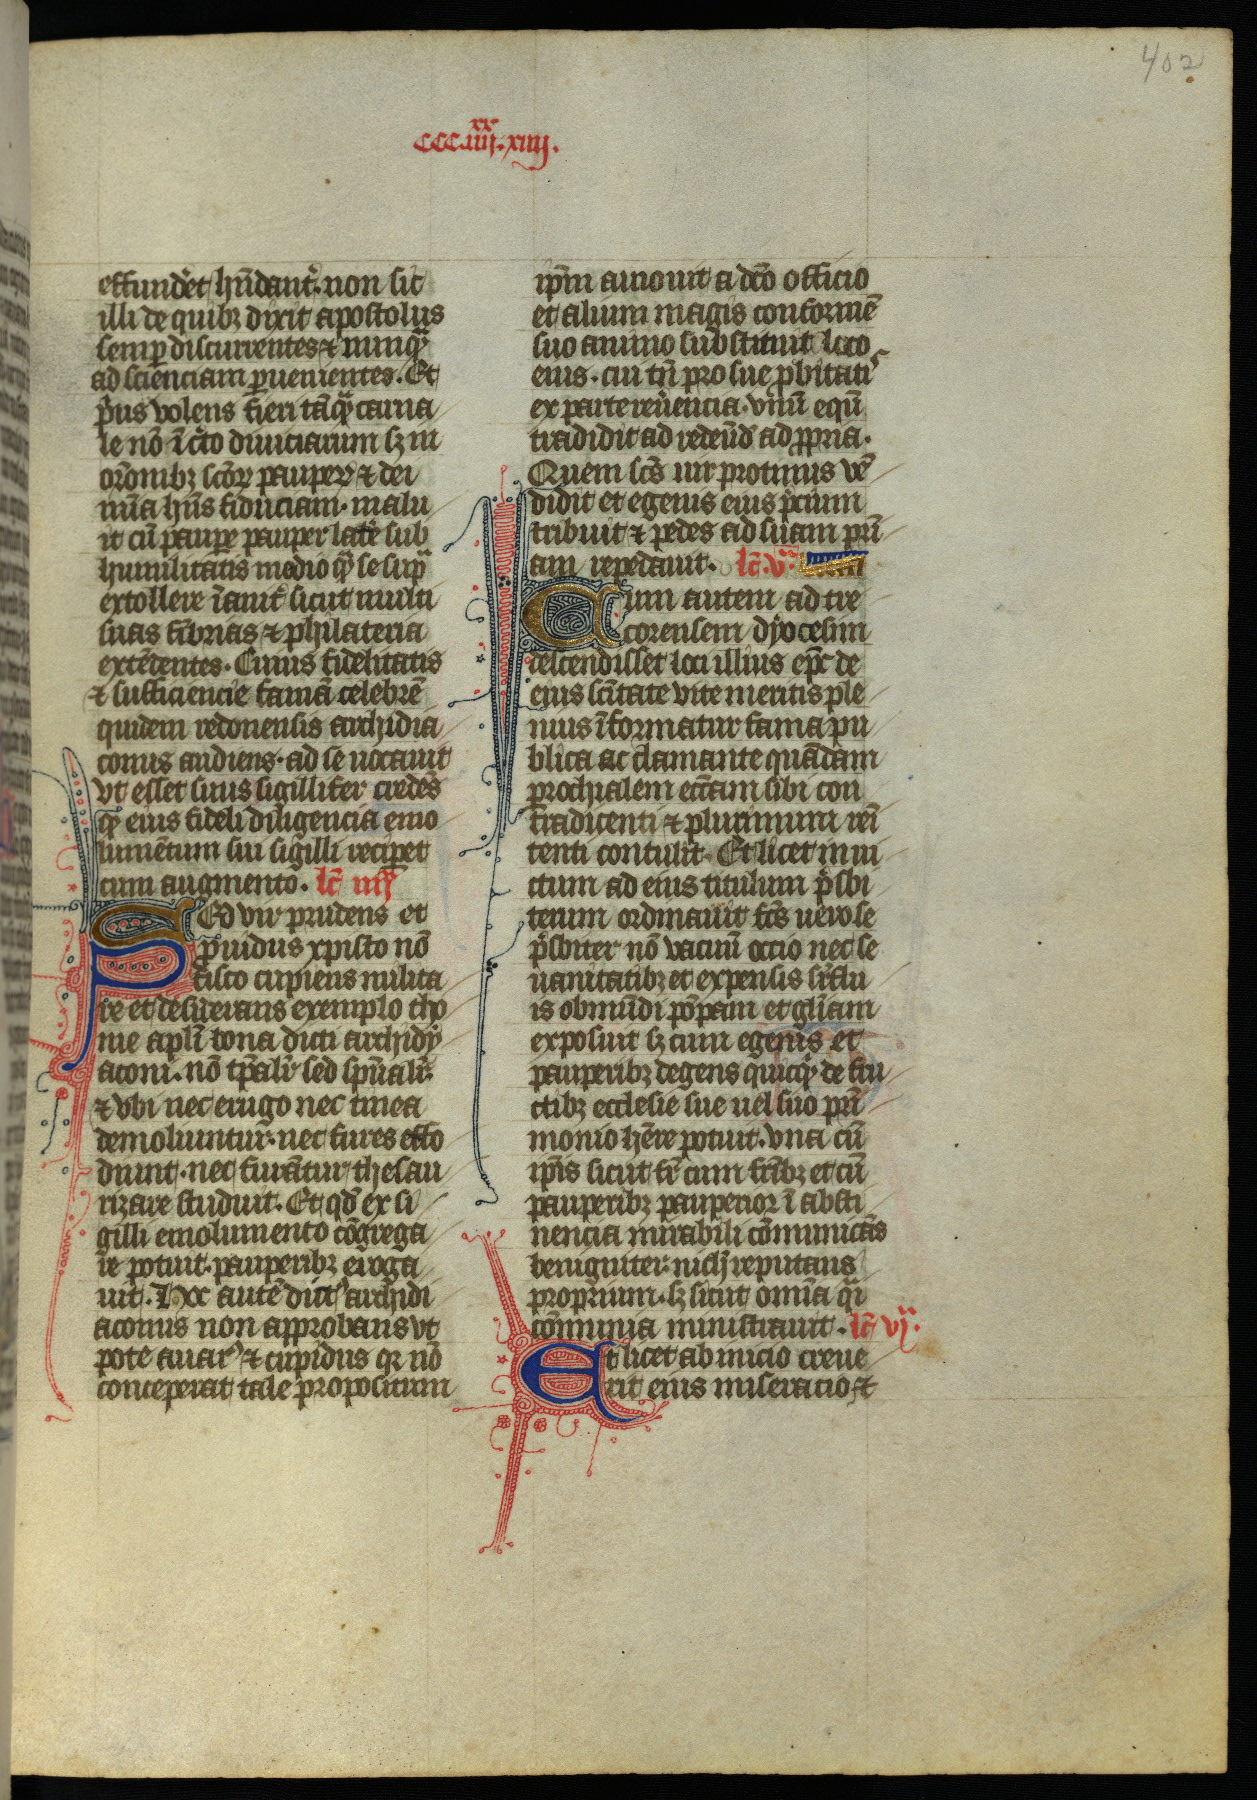 402
CCC.iiij.xx.xiiij.
effunderet hn̄danter. non sic
illi de quibꝫ dixit apostolus
semꝑ discurrentes ⁊ nunqᷓ
ad scienciam ꝑuenientes. Et
pius volens fieri tāqᷓ cama
le nō ī cto diuiciarum sꝫ in
orōnibꝫ scōꝝ pauperꝝ ⁊ dei
mīa hn̄s fiduciam. malu
it cū pauꝑe pauper latē sub
humilitatis modio qᷓ se supᷓ
extollere īaniter sicut multi
suas fibrias ⁊ philateria
extēdentes. Cuius fidelitatis
⁊ sufficiencie famā celebrē
quidem redonensis archidia
conus audiens. ad se uocauit
vt esset suus sigillifer credēs
qꝫ eius fideli diligencia emo
lumētum sui sigilli reciꝑet
cum augmento. lc̄ iiijᵃ
Sed vir prudens et
ꝓuidus xpisto nō
fisco cupiens milita
re et desiderans exemplo tho
me apli bona dicti archidy
aconi. nō tꝑaliter sed spūaliter
⁊ vbi nec erugo nec tinea
demoliuntur. nec fures effo
diunt. nec furātur thesau
rizare studuit. Et qd̄ ex si
gilli emolumento cōgrega
re potuit. pauperibꝫ eroga
uit. Hoc autē dictꝰ archidi
aconus non approbans vt
pote auarꝰ ⁊ cupidus qꝛ nō
conceperat tale propositum
ipm̄ amouit a dc̄o officio
et alium magis conformē
suo animo substituit loco
eius. cui tn̄ pro sue ꝓbitatis
ex parte reuerencia. vnū equū
tradidit ad redeūd ad ꝓpria.
Quem scs̄ uir protinus vē
didit et egenis eius precium
tribuit ⁊ pedes ad suam pri
am repedauit. lc̄. vᵃ
Cum autem ad tre
corensem dyocesim
descendisset loci illius epc̄ de
eius scītate vite meritis ple
nius īformatur fama pu
blica ac clamante quādam
prochialem eccliam sibi con
tradicenti ⁊ plurimum reni
tenti contulit. Et licet inui
ctum ad eius titulum presbi
terum ordinauit fcs̄ uero se
presbiter nō vacauit ocio nec se
uanitatibꝫ et expensis sꝑflu
is ob mūdi pōpam et gliam
exposuit sꝫ cum egenis et
pauperibꝫ degens quicqꝫ de fru
ctibꝫ ecclesie sue uel suo pri
monio hēre potuit. vna cū
ipīs sicut fr̄ cum fr̄ibꝫ et cū
pauperibꝫ pauperior ī absti
nencia mirabili cōmunicās
benigniter. nichil reputans
proprium. sꝫ sicut omīa qᷓi
cōmunia ministrauit. lc̄ vjᵃ.
Et licet ab inicio creue
rit eius miseracio. ⁊